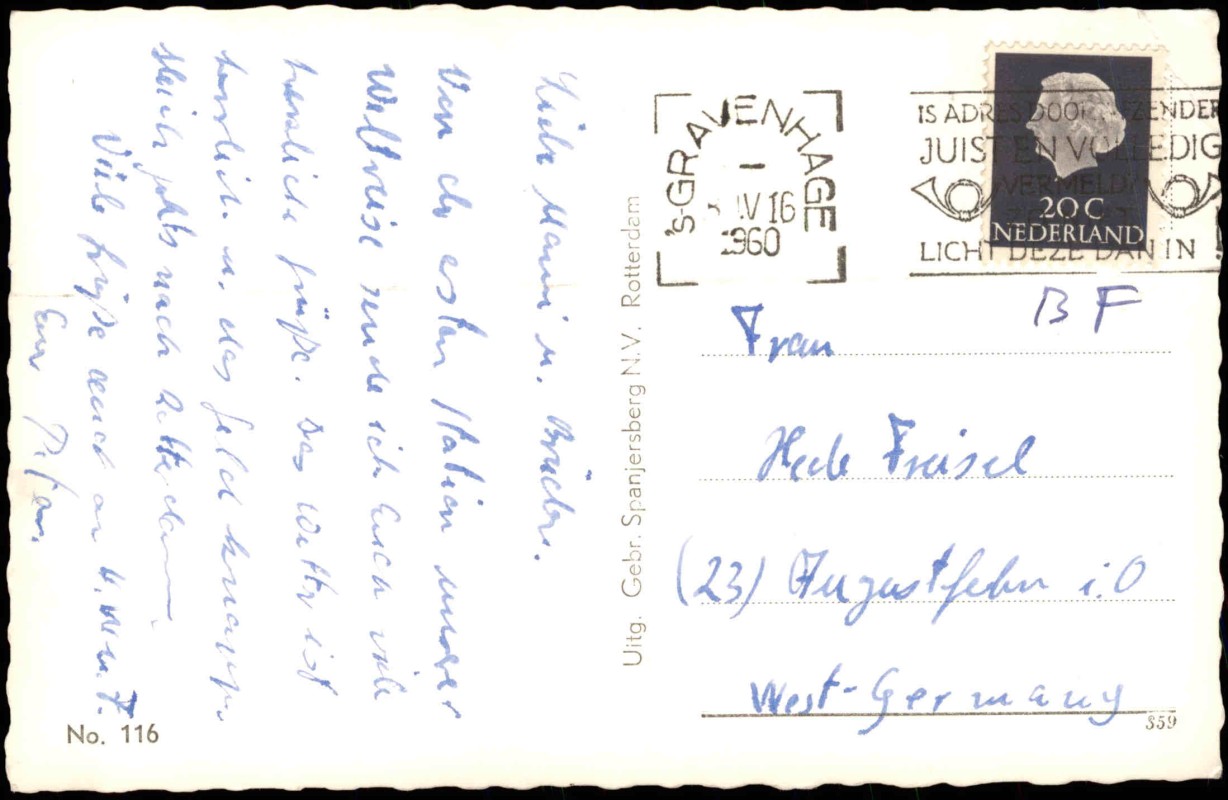 Liebe Mammi u. Brüder.
Von der ersten Station unser
Weltreise sende ich Euch viele
herzliche Grüße. Das Wetter ist
herrlich u. das Geld knapp.
Gleich gehts nach Rotterdam
Viele Grüße auch an
Euer
No. 116
Uitg. Gebr. Spanjersberg N.V. Rotterdam
's-GRAVENHAGE
IV 16
1960
IS ADRES DOOR AFZENDER
JUIST EN VOLLEDIG
VERMELD?
LICHT DEZE DAN IN !
20 C
NEDERLAND
B F
Frau
Hede Freisel
(23) Augustfehn i. O
West-Germany
S59